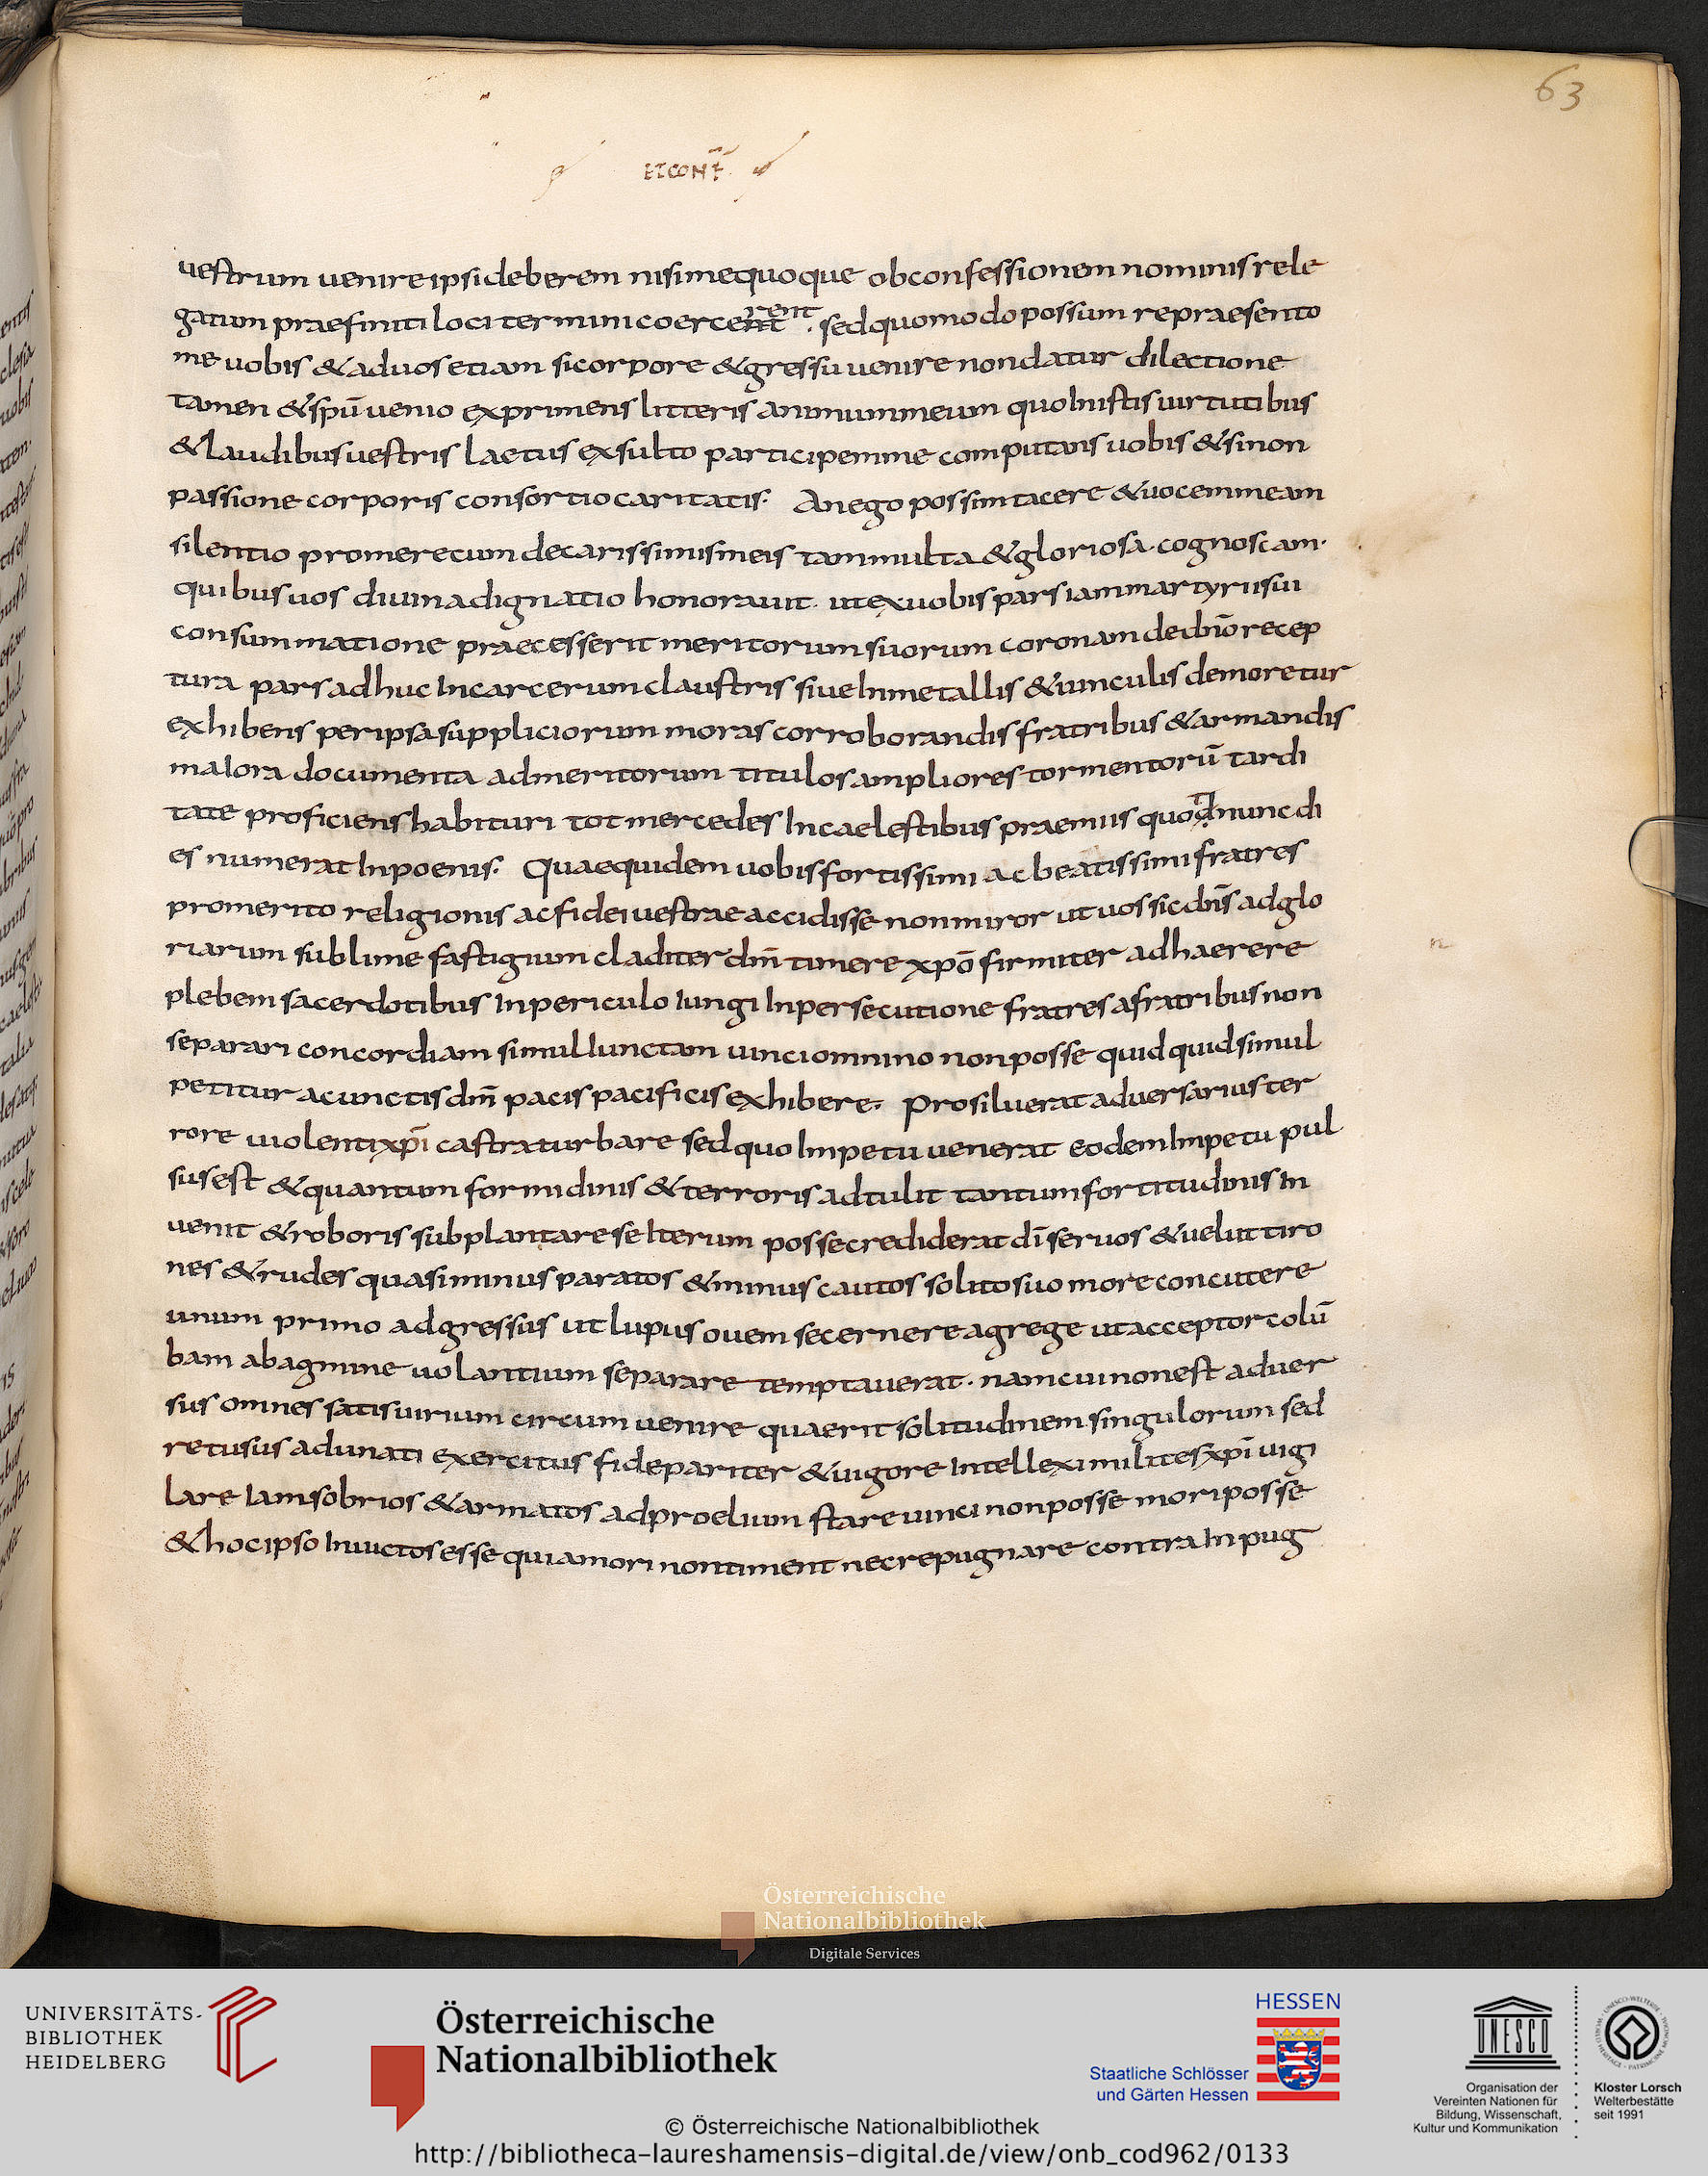 63
ET CONF̄
uestrum uenire ipsi deberem nisi me quoque ob confessionem nominis rele
gatum praefiniti loci termini coercent rent. sed quomodo possum repraesento
me uobis & ad uos etiam si corpore & gressu uenire non datur dilectione
tamen & spū uenio exprimens litteris animum meum quo In istis uirtutibus
& laudibus uestris laetus exsulto participem me computans uobis & si non
passione corporis consortio caritatis. An ego possim tacere & uocem meam
silentio promere cum de carissimis meis tam multa & gloriosa cognoscam.
quibus uos diuina dignatio honorauit. ut ex uobis pars iam martyrii sui
consummatione praecesserit meritorum suorum coronam de dn̄o recep
tura pars adhuc In carcerum claustris siue In metallis & uinculis demoretur
exhibens per ipsa suppliciorum moras corroborandis fratribus & armandis
maIora documenta ad meritorum titulos ampliores tormentorū tardi
tate proficiens habituri tot mercedes In caelestibus praemiis quod nunc di
es numerat In poenis. Quae quidem uobis fortissimi ac beatissimi fratres
pro merito religionis ac fidei uestrae accidisse non miror ut uos sic dn̄s ad glo
riarum sublime fastigium cladIter dn̄m timere xpō firmiter adhaerere
plebem sacerdotibus In periculo Iungi In persecutione fratres a fratribus non
separari concordiam simul Iunctam uinci omnino non posse quidquid simul
petitur a cunctis dm̄ pacis pacificis exhibere. Prosiluerat aduersarius ter
rore uiolenti xpī castra turbare sed quo Impetu uenerat eodem Impetu pul
sus est & quantum formidinis & terroris adtulit tantum fortitudinis In
uenit & roboris subplantare se Iterum posse crediderat dī seruos & uelut tiro
nes & rudes quasi minus paratos & minus cautos solito suo more concutere
unum primo adgressus ut lupus ouem secernere a grege ut acceptor colū
bam ab agmine uolantium separare temptauerat. nam cui non est aduer
sus omnes satis uirium circumuenire quaerit solitudinem singulorum sed
retusus adunati exercitus fide pariter & uigore Intellexi milites xpī uigi
lare Iam sobrios & armatos ad proelium stare uinci non posse mori posse
& hoc ipso Inuictos esse quia mori non timent nec repugnare contra Inpug
Österreichische
Nationalbibliothek
Digitale Services
UNIVERSITÄTS-
BIBLIOTHEK
HEIDELBERG
Österreichische
Nationalbibliothek
HESSEN
Staatliche Schlösser
und Gärten Hessen
UNESCO
Organisation der
Vereinten Nationen für
Bildung, Wissenschaft,
Kultur und Kommunikation
Kloster Lorsch
Welterbestätte
seit 1991
© Österreichische Nationalbibliothek
http://bibliotheca-laureshamensis-digital.de/view/onb_cod962/0133